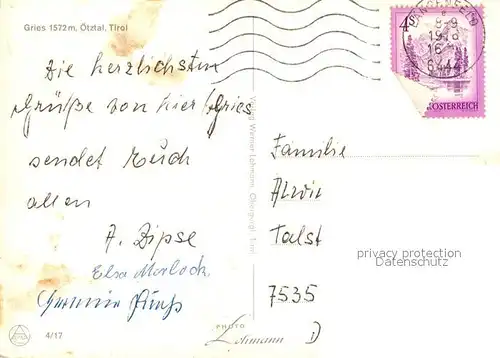 Gries 1572 m, Ötztal, Tirol
Die herzlichsten
Grüße von hier Gries
sendet Euch
allen
A. Zipse
Elsa Morlock
4/17
Verlag Werner Lohmann, Obergurgl, Tirol
PHOTO
Lohmann
4S
8-9
6444
ÖSTERREICH
Familie
Talst
7535
D
privacy protection
Datenschutz